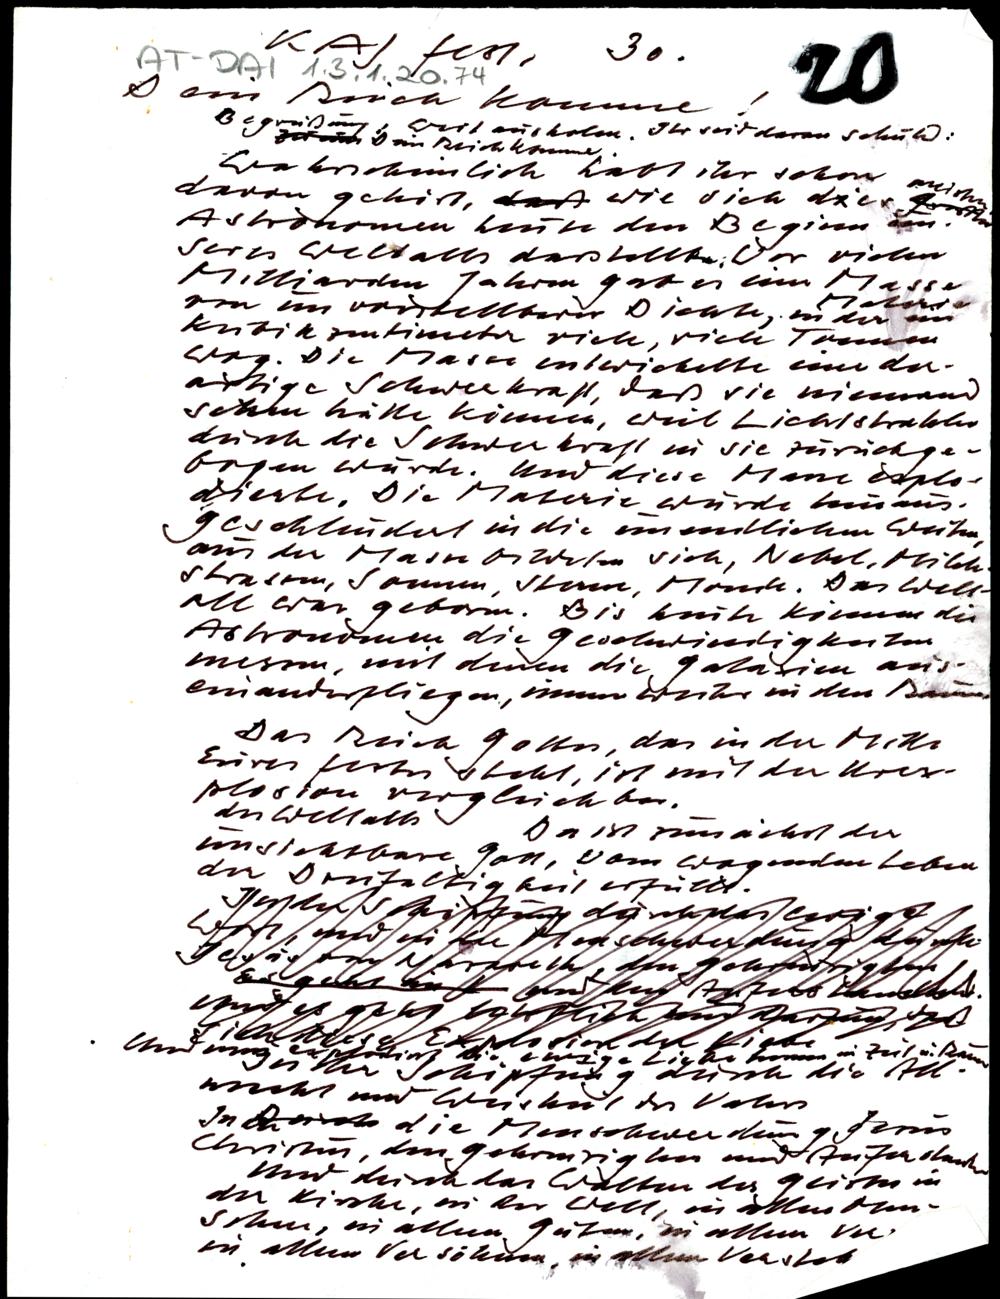 KAJ fest, 30.
20
AT-DAI 1.3.1.20.74
Dein Reich komme!
Begrüßung, weit ausholen. Ihr seid daran schuld:
Dein Reich komme.
Wahrscheinlich habt ihr schon
davon gehört, daß wie sich die meisten
Astronomen heute den Beginn un-
seres Weltalls darstellen: Vor vielen
Milliarden Jahren gab es eine Masse
von unvorstellbarer Dichte, in der ein Materie
Kubikzentimeter viele, viele Tonnen
wog. Die Masse entwickelte eine der-
artige Schwerkraft, daß sie niemand
sehen hätte können, weil Lichtstrahlen
durch die Schwerkraft in sie zurückge-
bogen wurde. Und diese Masse explo-
dierte. Die Materie wurde hinaus-
geschleudert in die unendlichen Weiten,
aus der Masse bildeten sich, Nebel, Milch-
strassen, Sonnen, Sterne, Monde. Das Welt-
all war geboren. Bis heute können die
Astronomen die Geschwindigkeiten
messen, mit denen die Galaxien aus-
einanderfliegen, immer weiter in den Raum
Das Reich Gottes, das in der Mitte
Eures Festes steht, ist mit der Urex-
plosion vergleichbar.
des Weltalls Da ist zunächst der
unsichtbare Gott, vom wogenden Leben
der Dreifaltigkeit erfüllt.
In der Schöpfung durch das ewige
Wort, und in der Menschwerdung durch
Jesus von Nazareth, den gekreuzigten
Es geht und den Auferstandenen.
und es geht
sich diese Explosion der Liebe
Und nun explodiert die ewige Liebe in Zeit u. Raum
In der Schöpfung durch die All-
macht und Weisheit des Vaters
In Durch die Menschwerdung Jesus
Christus, den gekreuzigten und Auferstandenen
Und durch das Walten des Geistes in
der Kirche, in der Welt, in allen Men-
schen, in allem Guten, in allem Ver-
in allem Versöhnen, in allem Versteh